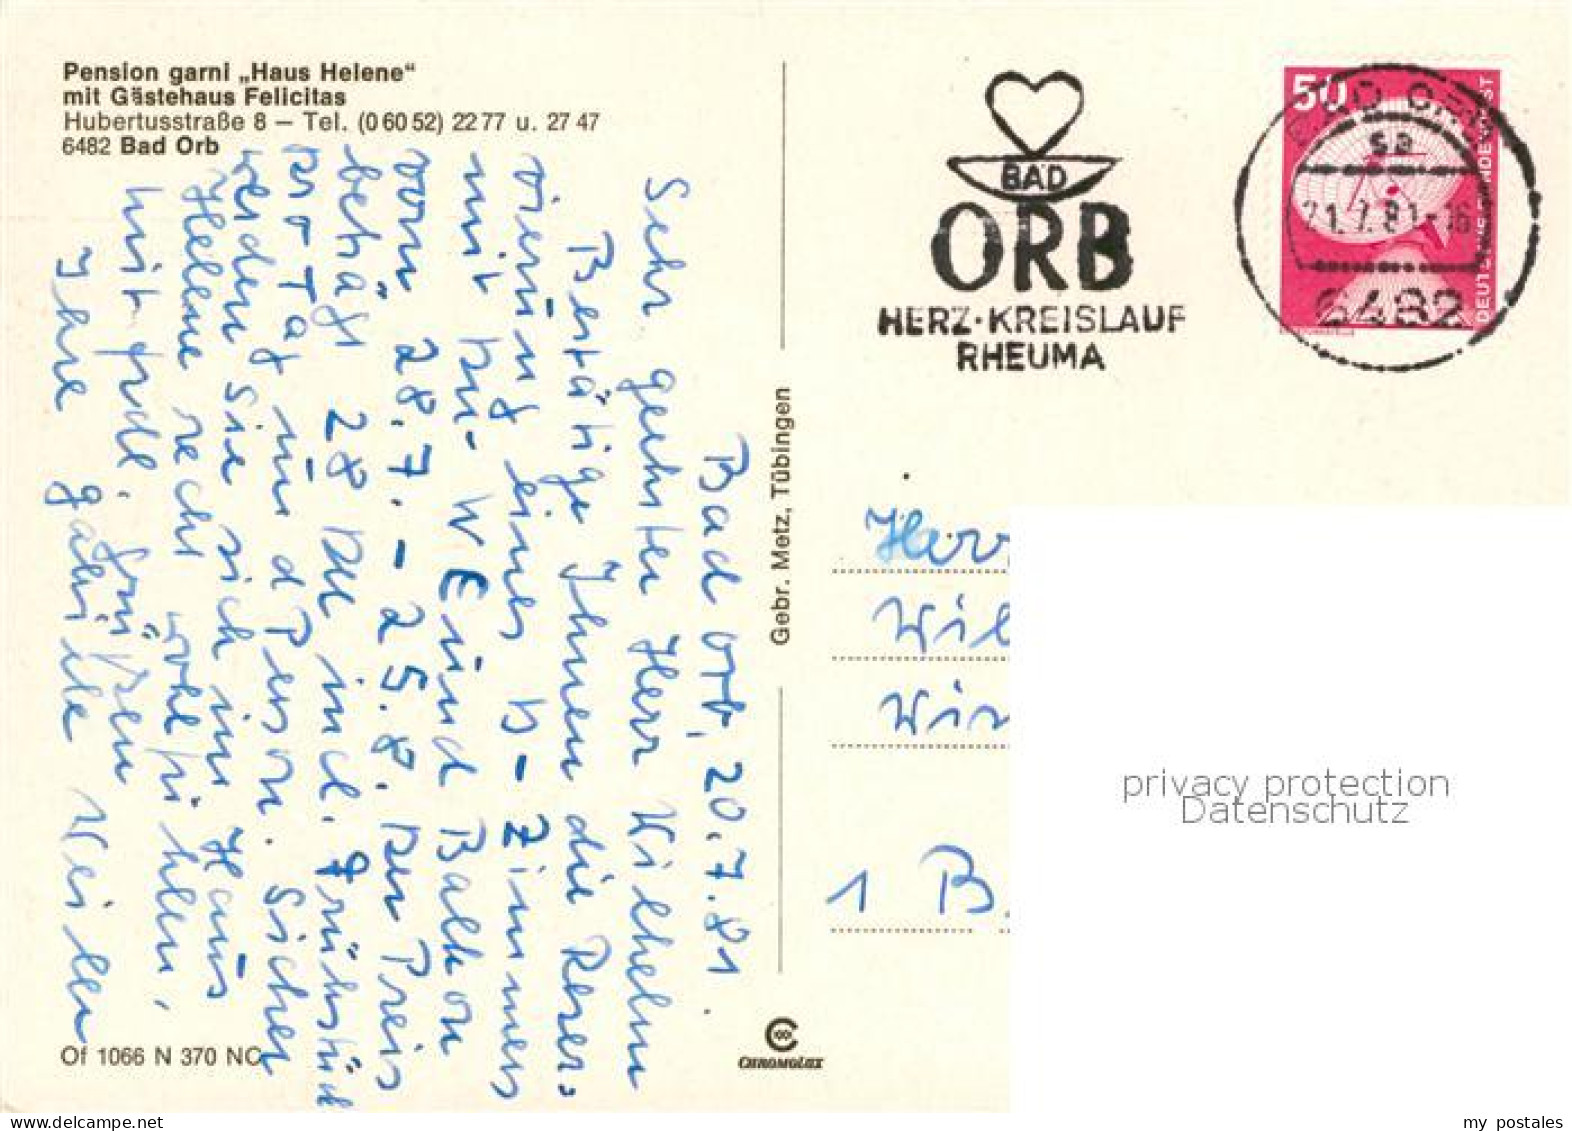 Pension garni „Haus Helene“
mit Gästehaus Felicitas
Hubertusstraße 8 — Tel. (0 60 52) 22 77 u. 27 47
6482 Bad Orb
Bad Orb, 20.7.81.
Sehr geehrter Herr Wilhelm
Bestätige Ihnen die Reser-
vierung eines D-Zimmers
mit Du-WC und Balkon
vom 28.7.-25.8. Der Preis
beträgt 28 DM incl. Frühstück
pro Tag und Person. Sicher
werden Sie sich im Haus
Helene recht wohlfühlen,
mit frdl. Grüßen
Ihre Familie Weiler
Of 1066 N 370 NC
Gebr. Metz, Tübingen
CHROMOLUX
BAD
ORB
HERZ·KREISLAUF
RHEUMA
50
DEUTSCHE BUNDESPOST
BAD ORB
sa
21.7.81-16
6482
Herr
Wil
Wir
1 B.
privacy protection
Datenschutz
my postales